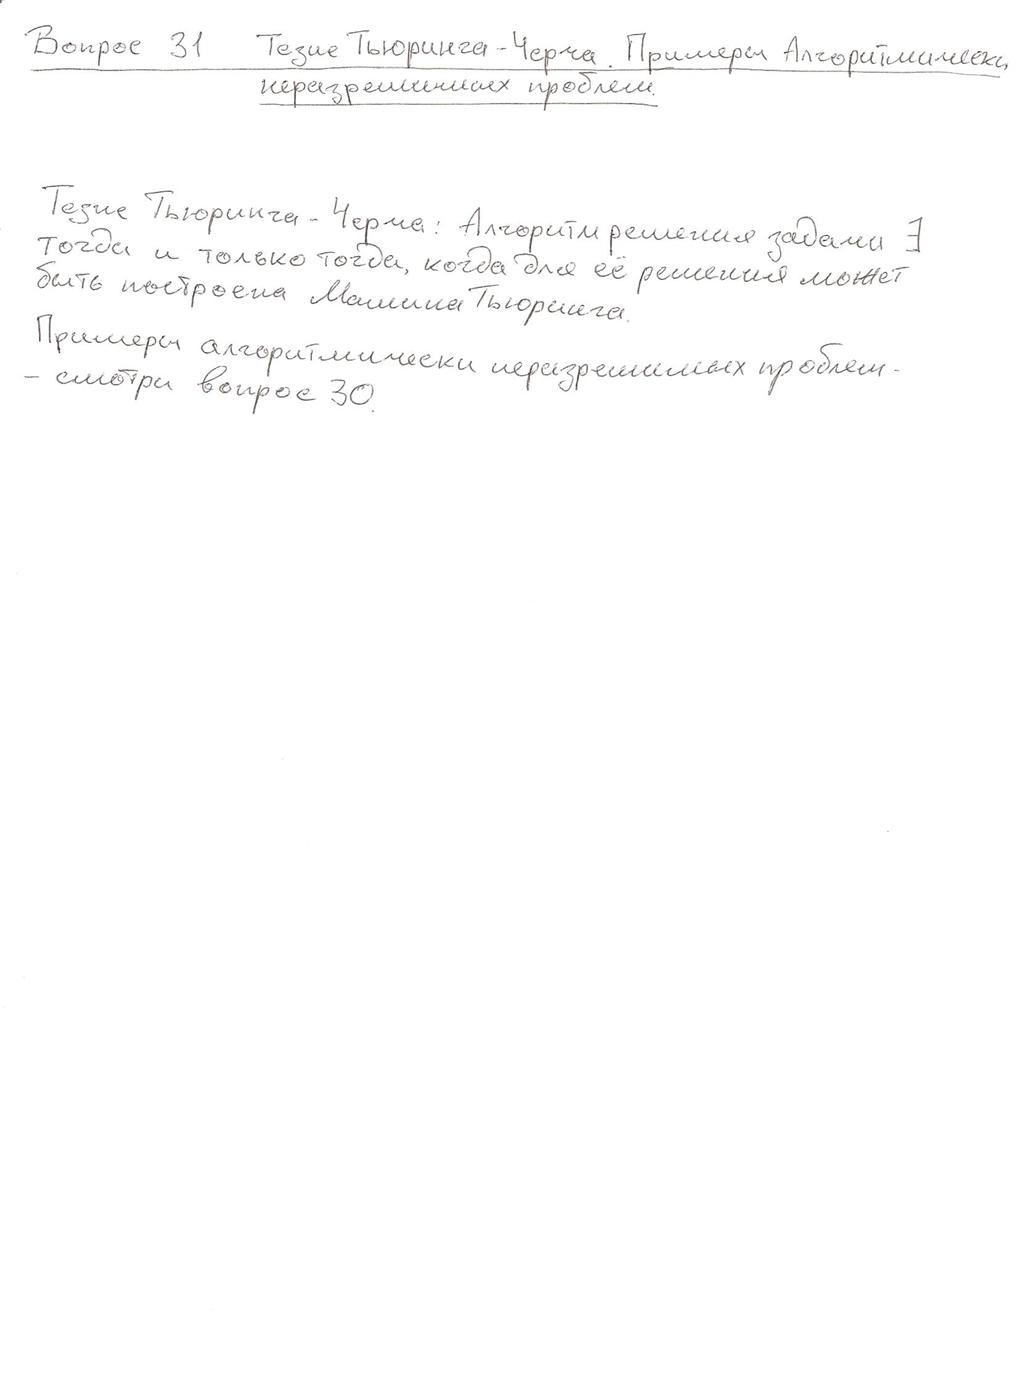 Вопрос 31 Тезис Тьюринга-Черча. Примеры Алгоритмически
неразрешимых проблем.
Тезис Тьюринга-Черча: Алгоритм решения задачи ∃
тогда и только тогда, когда для её решения может
быть построена Машина Тьюринга.
Примеры алгоритмически неразрешимых проблем -
- смотри вопрос 30.